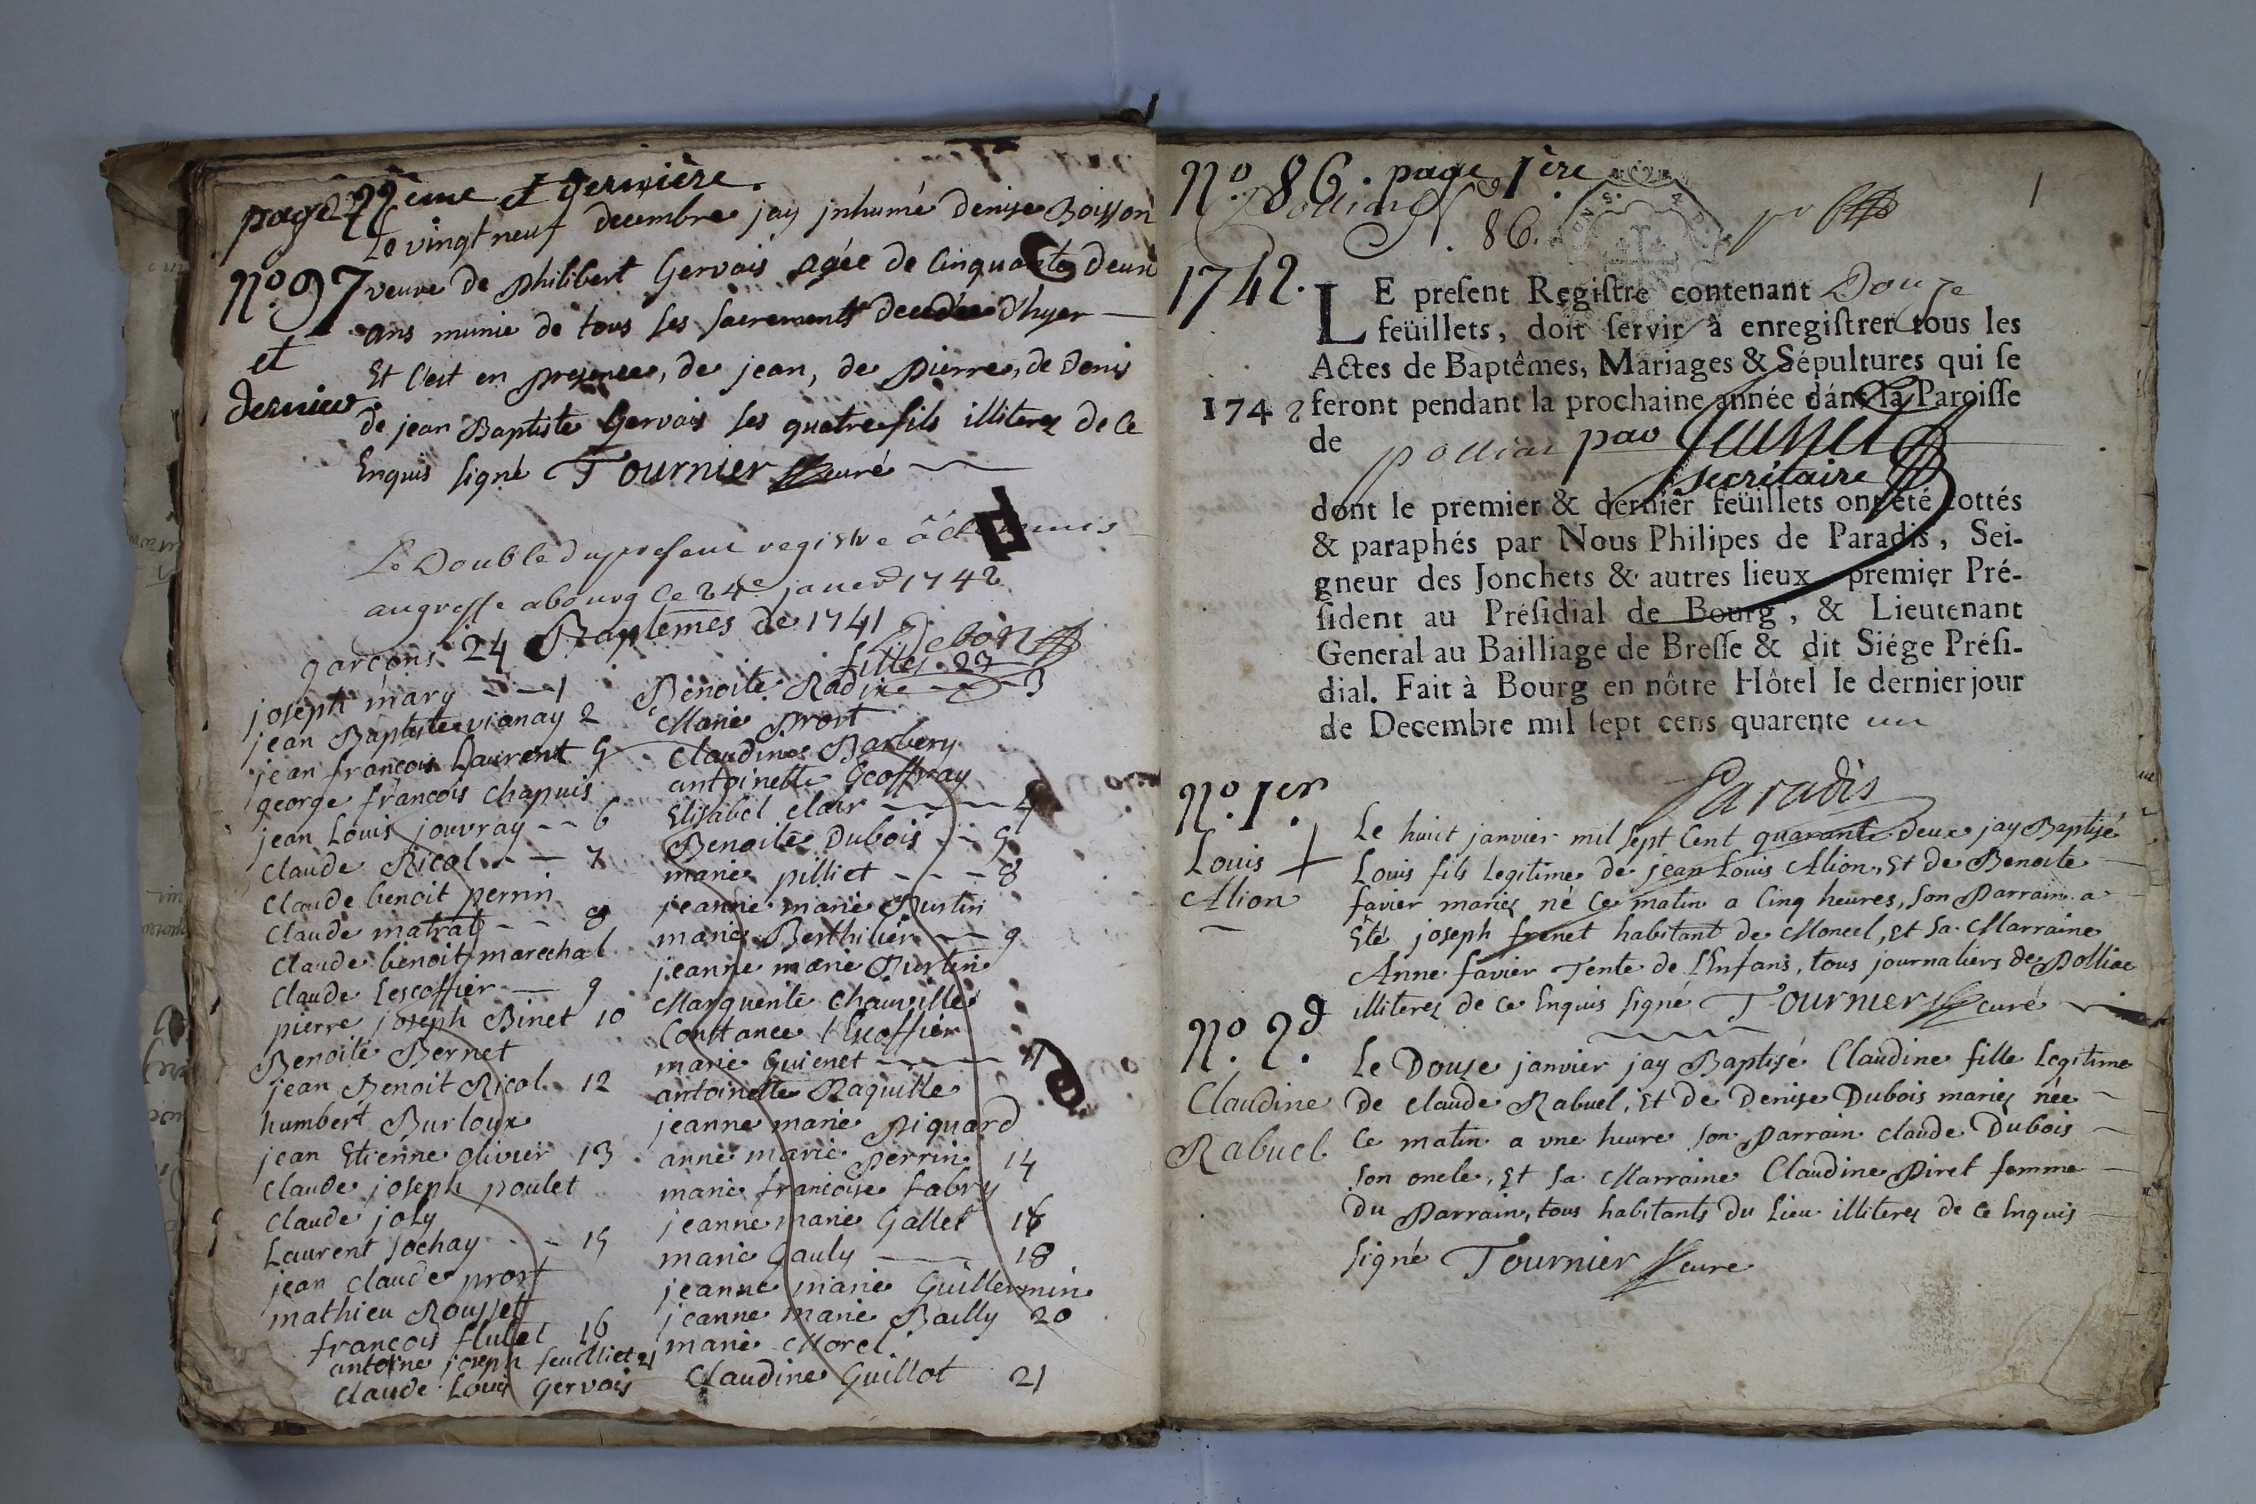 page 22ème et dernière.
Le vingt neuf decembre jay jnhumé denise Boisson
No. 97
et
dernier
veuve de philibert Gervais agée de Cinquante deux
ans munie de tous ses sacrements decedée d'hyer
Et C'est en presence, de jean, de pierre, de denis
de jean Baptiste Gervais ses quatre fils illiterez de ce
Enquis signé Tournier curé
Le Double du present registre a été remis
au greffe a bourg le 24e janvier 1742
Debon
24 Baptêmes de 1741
garçons
filles. 23
joseph mary 1
jean Baptiste vianay 2
jean françois Laurent 5
george françois chapuis
jean Louis jouvray 6
claude Ricol 7
claude benoit perrin
claude matrat 8
claude benoit marechal
claude Lescoffier 9
pierre joseph Binet 10
Benoite Bernet
jean Benoit Ricol 12
humbert Burloux
jean Etienne olivier 13
claude joseph poulet
claude joly
Laurent sochay 15
jean claude prost
mathieu Rousset
françois flutet 16
antoine joseph feuilliet 21
claude Louis Gervais
Benoite Radix 3
Marie prost
Claudine Barbery
antoinette Geoffray
Elisabet clair 4
Benoite Dubois 5
marie pilliet 8
jeanne marie Rustin
marie Berthilier 9
jeanne marie Rustin
Marguerite chauville
Constance l'Escoffier
marie Guienet 11
antoinette Raquille
jeanne marie piquard
anne marie perrin 14
marie françoise fabry
jeanne marie Gallet 18
marie Gauly 18
jeanne marie Guillermin
jeanne marie Bailly 20
marie Morel
Claudine Guillot 21
No. 86. page 1ère
1
Polliat N. 86.
1742.
LE present Registre contenant Douze
feüillets, doit servir à enregistrer tous les
Actes de Baptêmes, Mariages & Sépultures qui se
1742 feront pendant la prochaine année dans la Paroisse
de polliat par
secrétaire
dont le premier & dernier feüillets ont été cottés
& paraphés par Nous Philipes de Paradis, Sei-
gneur des Jonchets & autres lieux, premier Pré-
sident au Présidial de Bourg, & Lieutenant
General au Bailliage de Bresse & dit Siége Prési-
dial. Fait à Bourg en nôtre Hôtel le dernier jour
de Decembre mil sept cens quarente un
Paradis
No. 1er.
Louis
Alion
Le huit janvier mil sept Cent quarante deux jay Baptisé
Louis fils Legitime de jean Louis Alion, Et de Benoite
favier mariez né Ce matin a Cinq heures, son Parrain a
Eté joseph frenet habitant de Moncel, et sa Marraine
Anne favier Tente de l'Enfans, tous journaliers de Polliac
illiterez de Ce Enquis signé Tournier curé
No. 2d.
Claudine
Rabuel
Le Douze janvier jay Baptisé Claudine fille Legitime
de claude Rabuel, Et de Denise Dubois mariez née
Ce matin a une heure son Parrain claude Dubois
son oncle, Et sa Marraine Claudine Piret femme
du Parrain, tous habitants du Lieu illiterez de Ce Inquis
signé Tournier curé